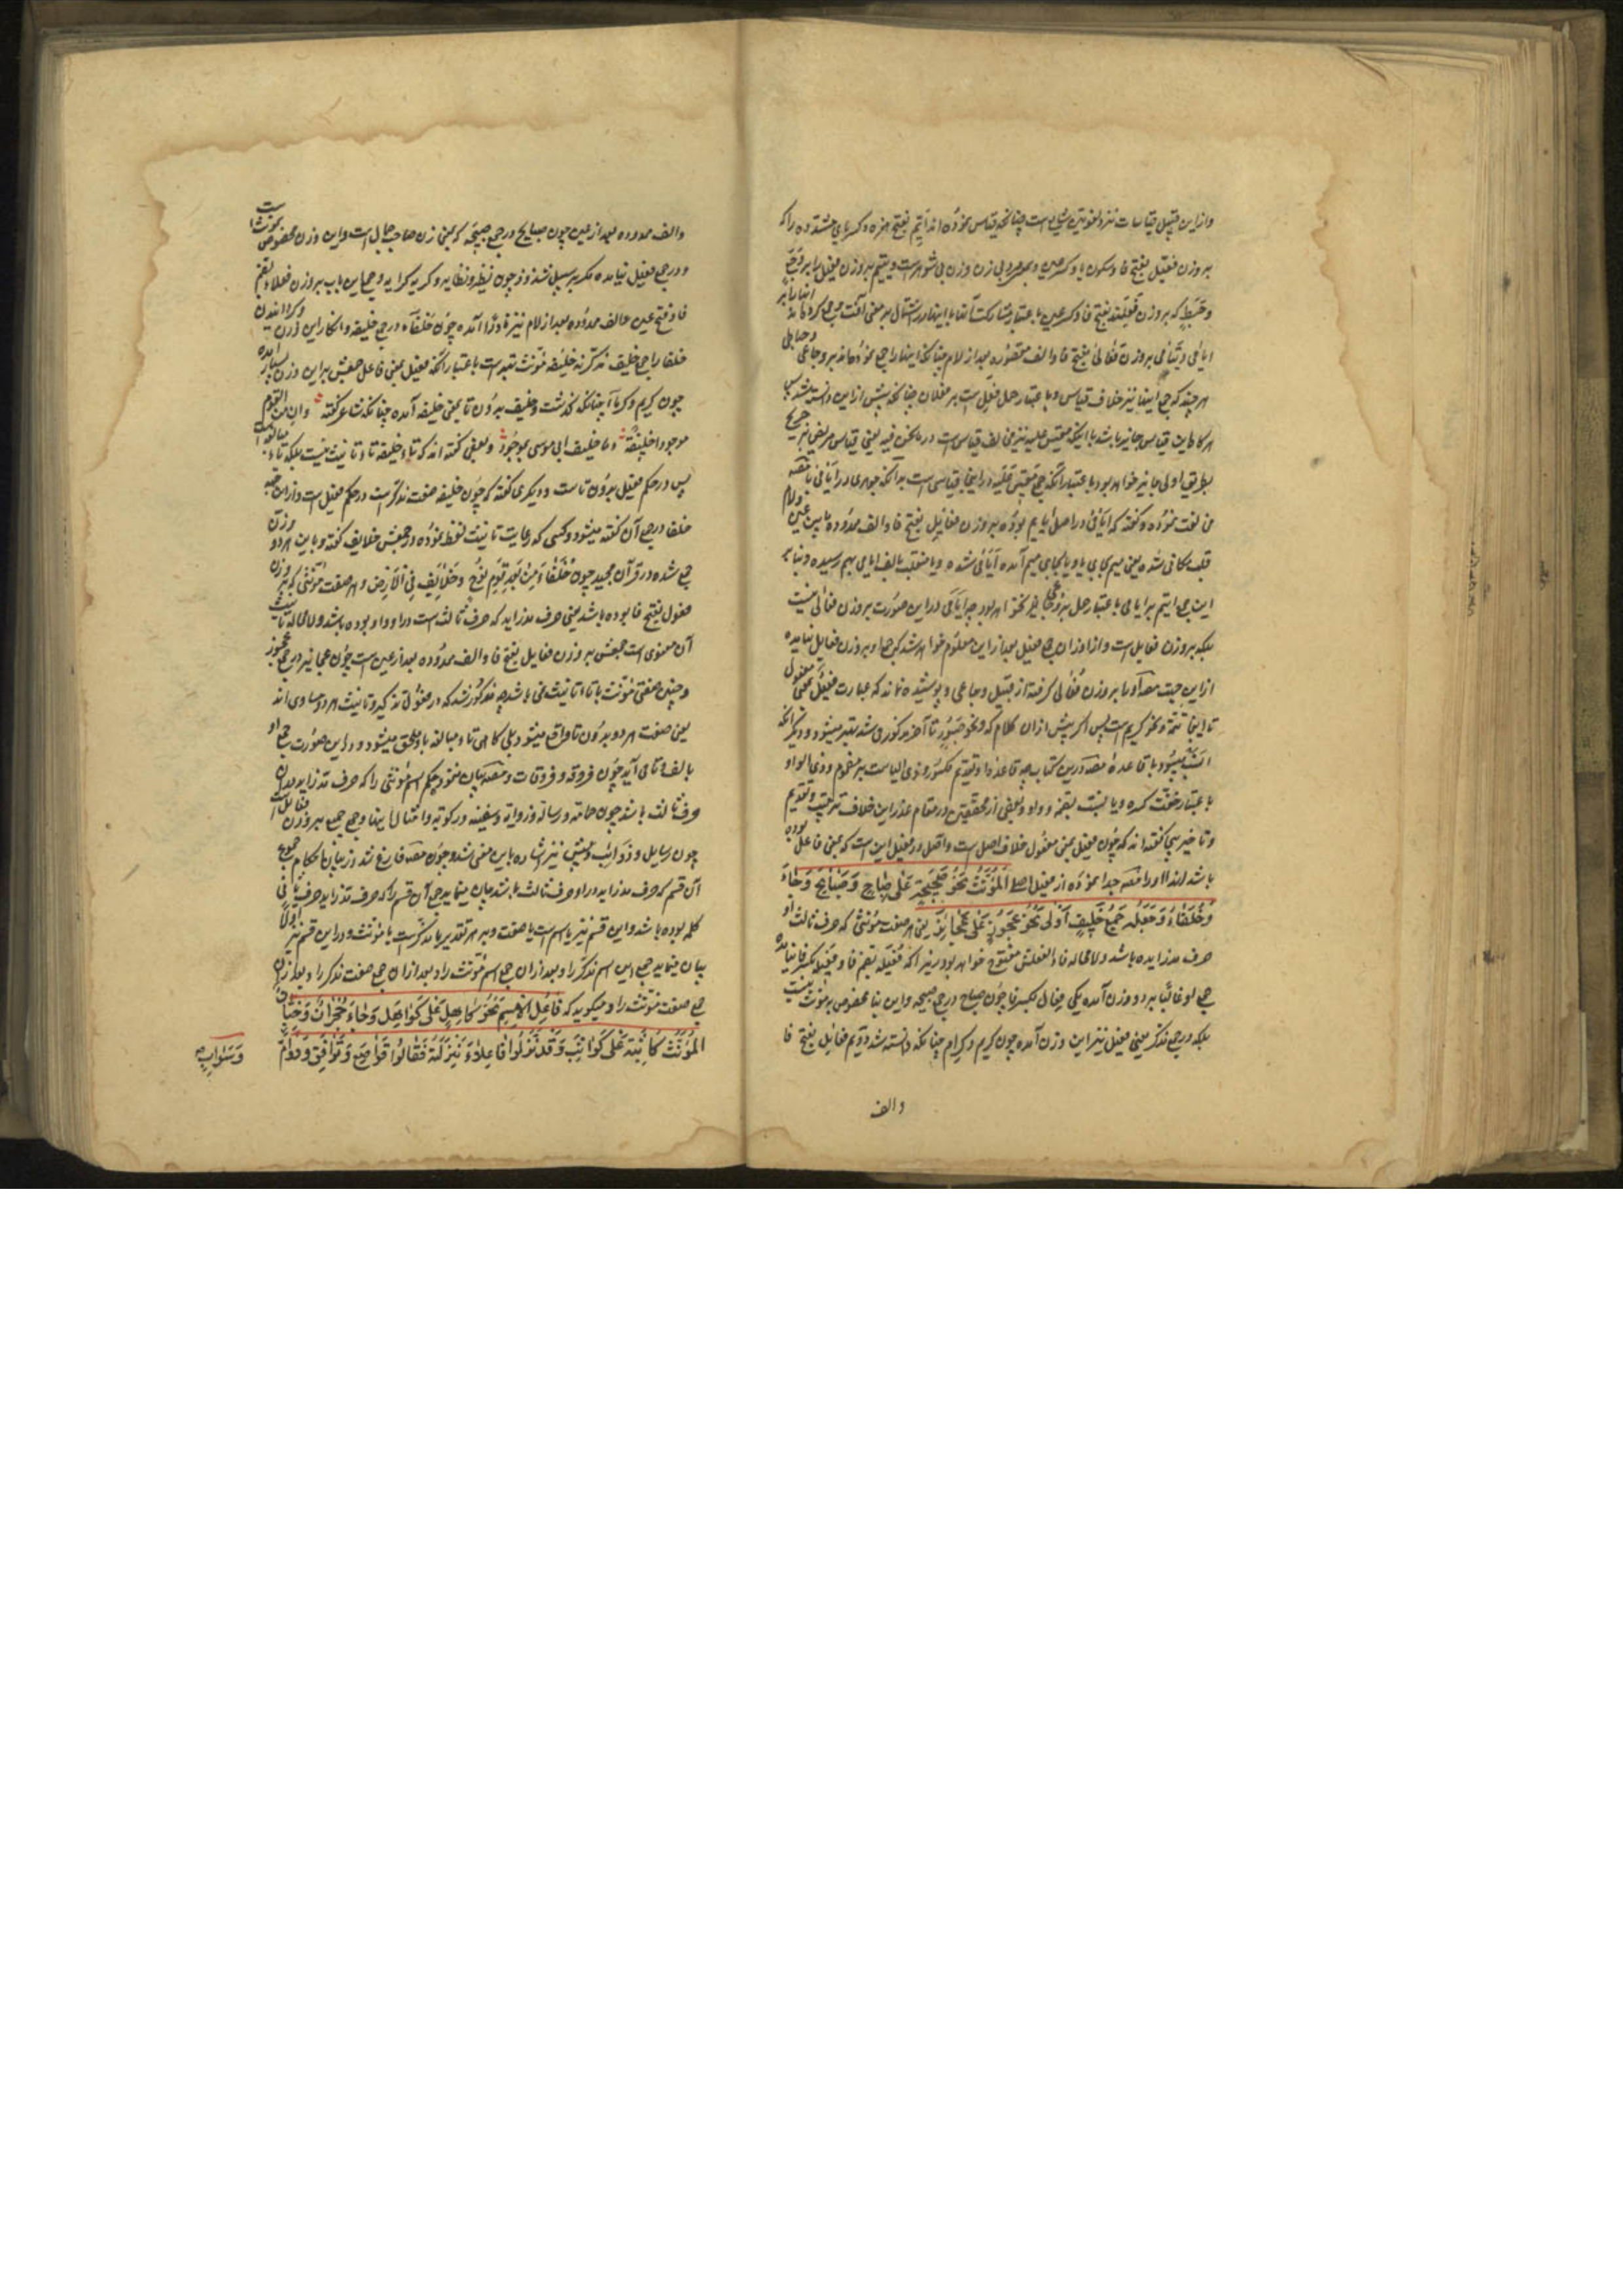 وازاین قبیل قیاسات نزد لغویین شایع است چنانکه قیاس نموده اند ایم بفتح همزه وکسر یای مشدده را که
بروزن فعیل بفتح فا وسکون یا وکسر عین
وحبط که بروزن
ایامی ویتامی بروزن فعالی بفتح فا والف مقصوره بعد از لام چنانکه اینها را جمع نموده اند بر وجاعی وحباطی
هر چند که جمع اینها نیز خلاف قیاس وبا اعتبار حمل فعیل است بر فعلان چنانکه پیش ازاین دانسته شد پس
هرگاه این قیاس جایز باشد با اینکه مقیس علیه نیز مخالف قیاس است در ما نحن فیه یعنی قیاس مریض نیز
بطریق اولی جایز خواهد بود با اعتبار آنکه جمع مقیس علیه در اینجا قیاسی است بدانکه جوهری در ایامی با مصنف
مخالفت نموده وگفته که ایامی در اصل ایایم بوده بروزن فعایل بفتح فا والف ممدوده مابین عین ولام
قلب مکانی شده یعنی میم بجای یا ویا بجای میم آمده ایامی شده ویا منقلب بالف ایامی بهم رسیده وبنابر
این جمع ایم بر ایامی با اعتبار حمل بر وجاعی نخواهد بود چه ایامی در این صورت بروزن فعالی نیست
بلکه بروزن فعایل است واز اوزان جمع فعیل بعد ازاین معلوم خواهد شد که جمع او بروزن فعایل نیامده
ازاین جهت مصنف او را بروزن فعالی گرفته از قبیل وجاعی وپوشیده نماند که عبارت فعیل بمعنی مفعول
تا اینجا تتمه ونحو کریم است پس اگر پیش ازان کلام که ونحو صبور تا آخر مذکور می شد بهتر میبود ودیگر آنکه
انسب میبود با قاعده مصنف درین کتاب چه قاعده او تقدیم مکسور وذی الیا است بر مضموم وذی الواو
با اعتبار خفت کسره ویا نسبت بضمه وواو وبعضی از محققین در مقام عذر این خلاف ترتیب وتقدیم
وتاخیر بیجا گفته اند که چون فعیل بمعنی مفعول خلاف اصل است واصل در فعیل این است که بمعنی فاعل بوده
باشد لهذا او را مصنف جدا نموده از فعیل اصلی اَلْمُؤَنَّثُ نَحْوُ صَبِیحَةٍ عَلٰی صِبَاحٍ وَصَبَایِحَ وَجَاءَ
وَخُلَفَاءُ وَجَعْلُهُ جَمْعُ خَلِیفٍ اَوْلٰی نَحْوُ عَجُوزٍ عَلٰی عَجَایِزَ یعنی هر صفت مؤنثی که حرف ثالث او
حرف مد زاید باشد ولا محاله فاء الفعلش مفتوح خواهد بود زیرا که فعیله بضم فا وفعیله بکسر فا نیامده
جمع او غالبا بر دو وزن آمده یکی فعال بکسر فا چون صباح در جمع صبیحه واین بنا مخصوص بمؤنث نیست
بلکه در جمع مذکر یعنی فعیل نیز این وزن آمده چون کریم وکرام چنانکه دانسته شد دویم فعایل بفتح فا
والف
والف ممدوده بعد از عین چون صبایح در جمع صبیحه که بمعنی زن صاحب جمال است واین وزن مخصوص بمؤنث است
ودر جمع فعیل نیامده مگر بر سبیل شذوذ چون نظیر ونظایر وکریه کرایه وجمع این باب بروزن فعلاء بضم
فا وفتح عین والف ممدوده بعد از لام نیز نادرا آمده چون خلفاء در جمع خلیفه وانکار این وزن وگردانیدن
خلفا را جمع خلیف مذکر نه خلیفه مؤنث بهتر است با اعتبار آنکه فعیل بمعنی فاعل جمعش براین وزن بسیار آمده
چون کریم وکرما چنانکه گذشت وخلیف بدون تا بمعنی خلیفه آمده چنانکه شاعر گفته وان من القوم
موجودا خلیفة وما خلیف ابی موسی بموجود وبعضی گفته اند که تاء خلیفه تاء تانیث نیست بلکه تاء مبالغه است
پس در حکم فعیل بدون تا است ودیگری گفته که چون خلیفه صفت مذکر است در حکم فعیل است وازاین جهة
خلفا در جمع آن گفته میشود وکسی که رعایت تانیث لفظ نموده در جمعش خلایف گفته وباین هر دو وزن
جمع شده در قرآن مجید چون خُلَفَاءَ مِنْ بَعْدِ قَوْمِ نُوحٍ وخَلَایِفَ فِی الْاَرْضِ وهر صفت مؤنثی که بر وزن
فعول بفتح فا بوده باشد یعنی حرف مد زاید که حرف ثالث است در او واو بوده باشد ولا محاله تانیث
آن معنوی است جمعش بروزن فعایل بفتح فا والف ممدوده بعد از عین است چون عجایز در جمع عجوز
وچنین صفتی مؤنث با تاء تانیث نمی باشد چه مذکور شد که در فعول تذکیر وتانیث هر دو مساوی اند
یعنی صفت هر دو بدون تا واقع میشود بلی گاهی تاء مبالغه باو ملحق میشود ودر این صورت جمع او
بالف وتا می آید چون فروقه وفروقات ومصنف بیان ننمود حکم اسم مؤنثی را که حرف مد زاید دران
حرف ثالث باشد چون حمامه ورساله وذوابه وسفینه ورکوبه وامثال اینها وجمع جمیع بروزن فعایل است
چون رسایل وذوائب ومتنبی نیز اشاره باین معنی شد وچون مصنف فارغ شد از بیان احکام جموع
آن قسم که حرف مد زاید در او حرف ثالث باشد بیان مینماید جمع آن قسم را که حرف مد زاید حرف ثانی
کلمه بوده باشد واین قسم نیز یا اسم است یا صفت وبر هر تقدیر یا مذکر است یا مؤنث ودراین قسم نیز اولا
بیان مینماید جمع این اسم مذکر را وبعد ازان جمع اسم مؤنث را وبعد ازان جمع صفت مذکر را وبعد ازان
جمع صفت مؤنث را ومیگوید که فَاعِلُ الْاِسْمِ نَحْوُ کَاهِلٍ عَلٰی کَوَاهِلَ وَجَاءَ حُجْرَانٌ وَجِنَّانٌ
الْمُؤَنَّثُ نَحْوُ کَاثِبَةٍ عَلٰی کَوَاثِبَ وَقَدْ نَزَّلُوا فَاعِلَاءَ مَنْزِلَتَهُ فَقَالُوا قَوَاصِعَ وَنَوَافِقَ وَدَوَامَّ
وَسَوَابٍ